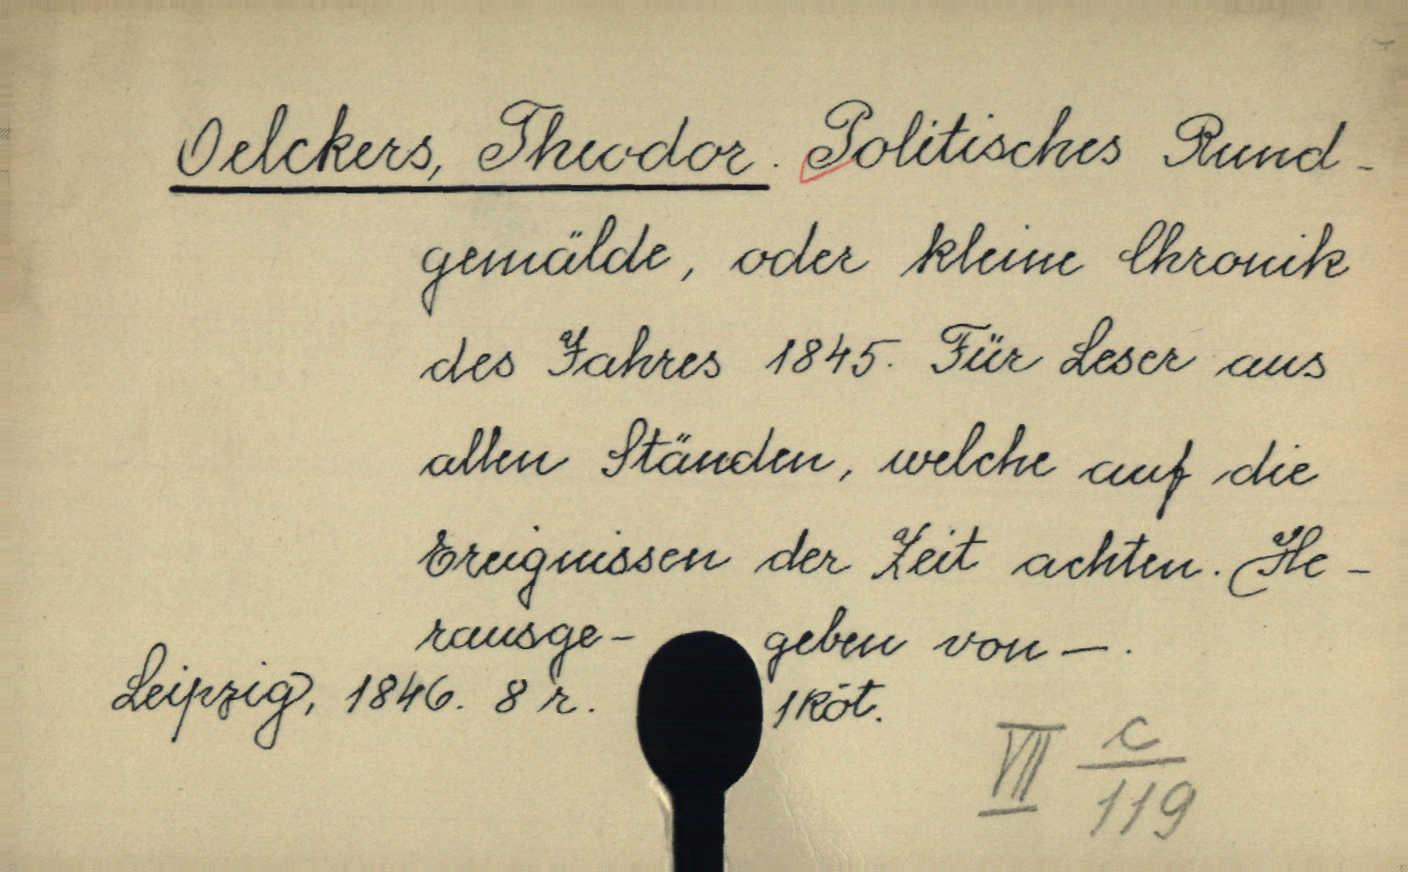 Oelckers, Theodor. Politisches Rund-
gemälde, oder kleine Chronik
des Jahres 1845. Für Leser aus
allen Ständen, welche auf die
Ereignissen der Zeit achten. He-
rausge- geben von —.
Leipzig, 1846. 8 r. 1 köt.
VII c/119